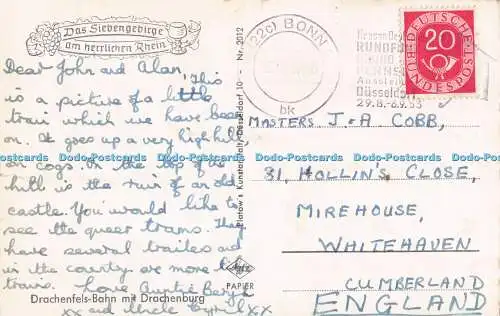 Das Siebengebirge
am herrlichen Rhein
Dear John and Alan, This
is a picture of a little
train which we have been
on. It goes up a very high hill
on cogs. On the top of the
hill is the ruin of an old
castle. You would like to
see the queer trams. They
have several trailers and
in the country are more like
trains. Love Auntie Beryl
xx and Uncle Cyril xx
Drachenfels-Bahn mit Drachenburg
Nr. 2012
Düsseldorf 10
PAPIER
(22c) BONN
bk
Grosse Deu
RUNDFU
UND
FERNSE
Ausstell
Düsseldorf
29.8.-6.9.53
DEUTSCHE
BUNDESPOST
20
MASTERS J. & A COBB,
31, HOLLIN'S CLOSE,
MIREHOUSE,
WHITEHAVEN
CUMBERLAND
ENGLAND
Dodo-Postcards Dodo-Postcards Dodo-Postcards Dodo-Postcards